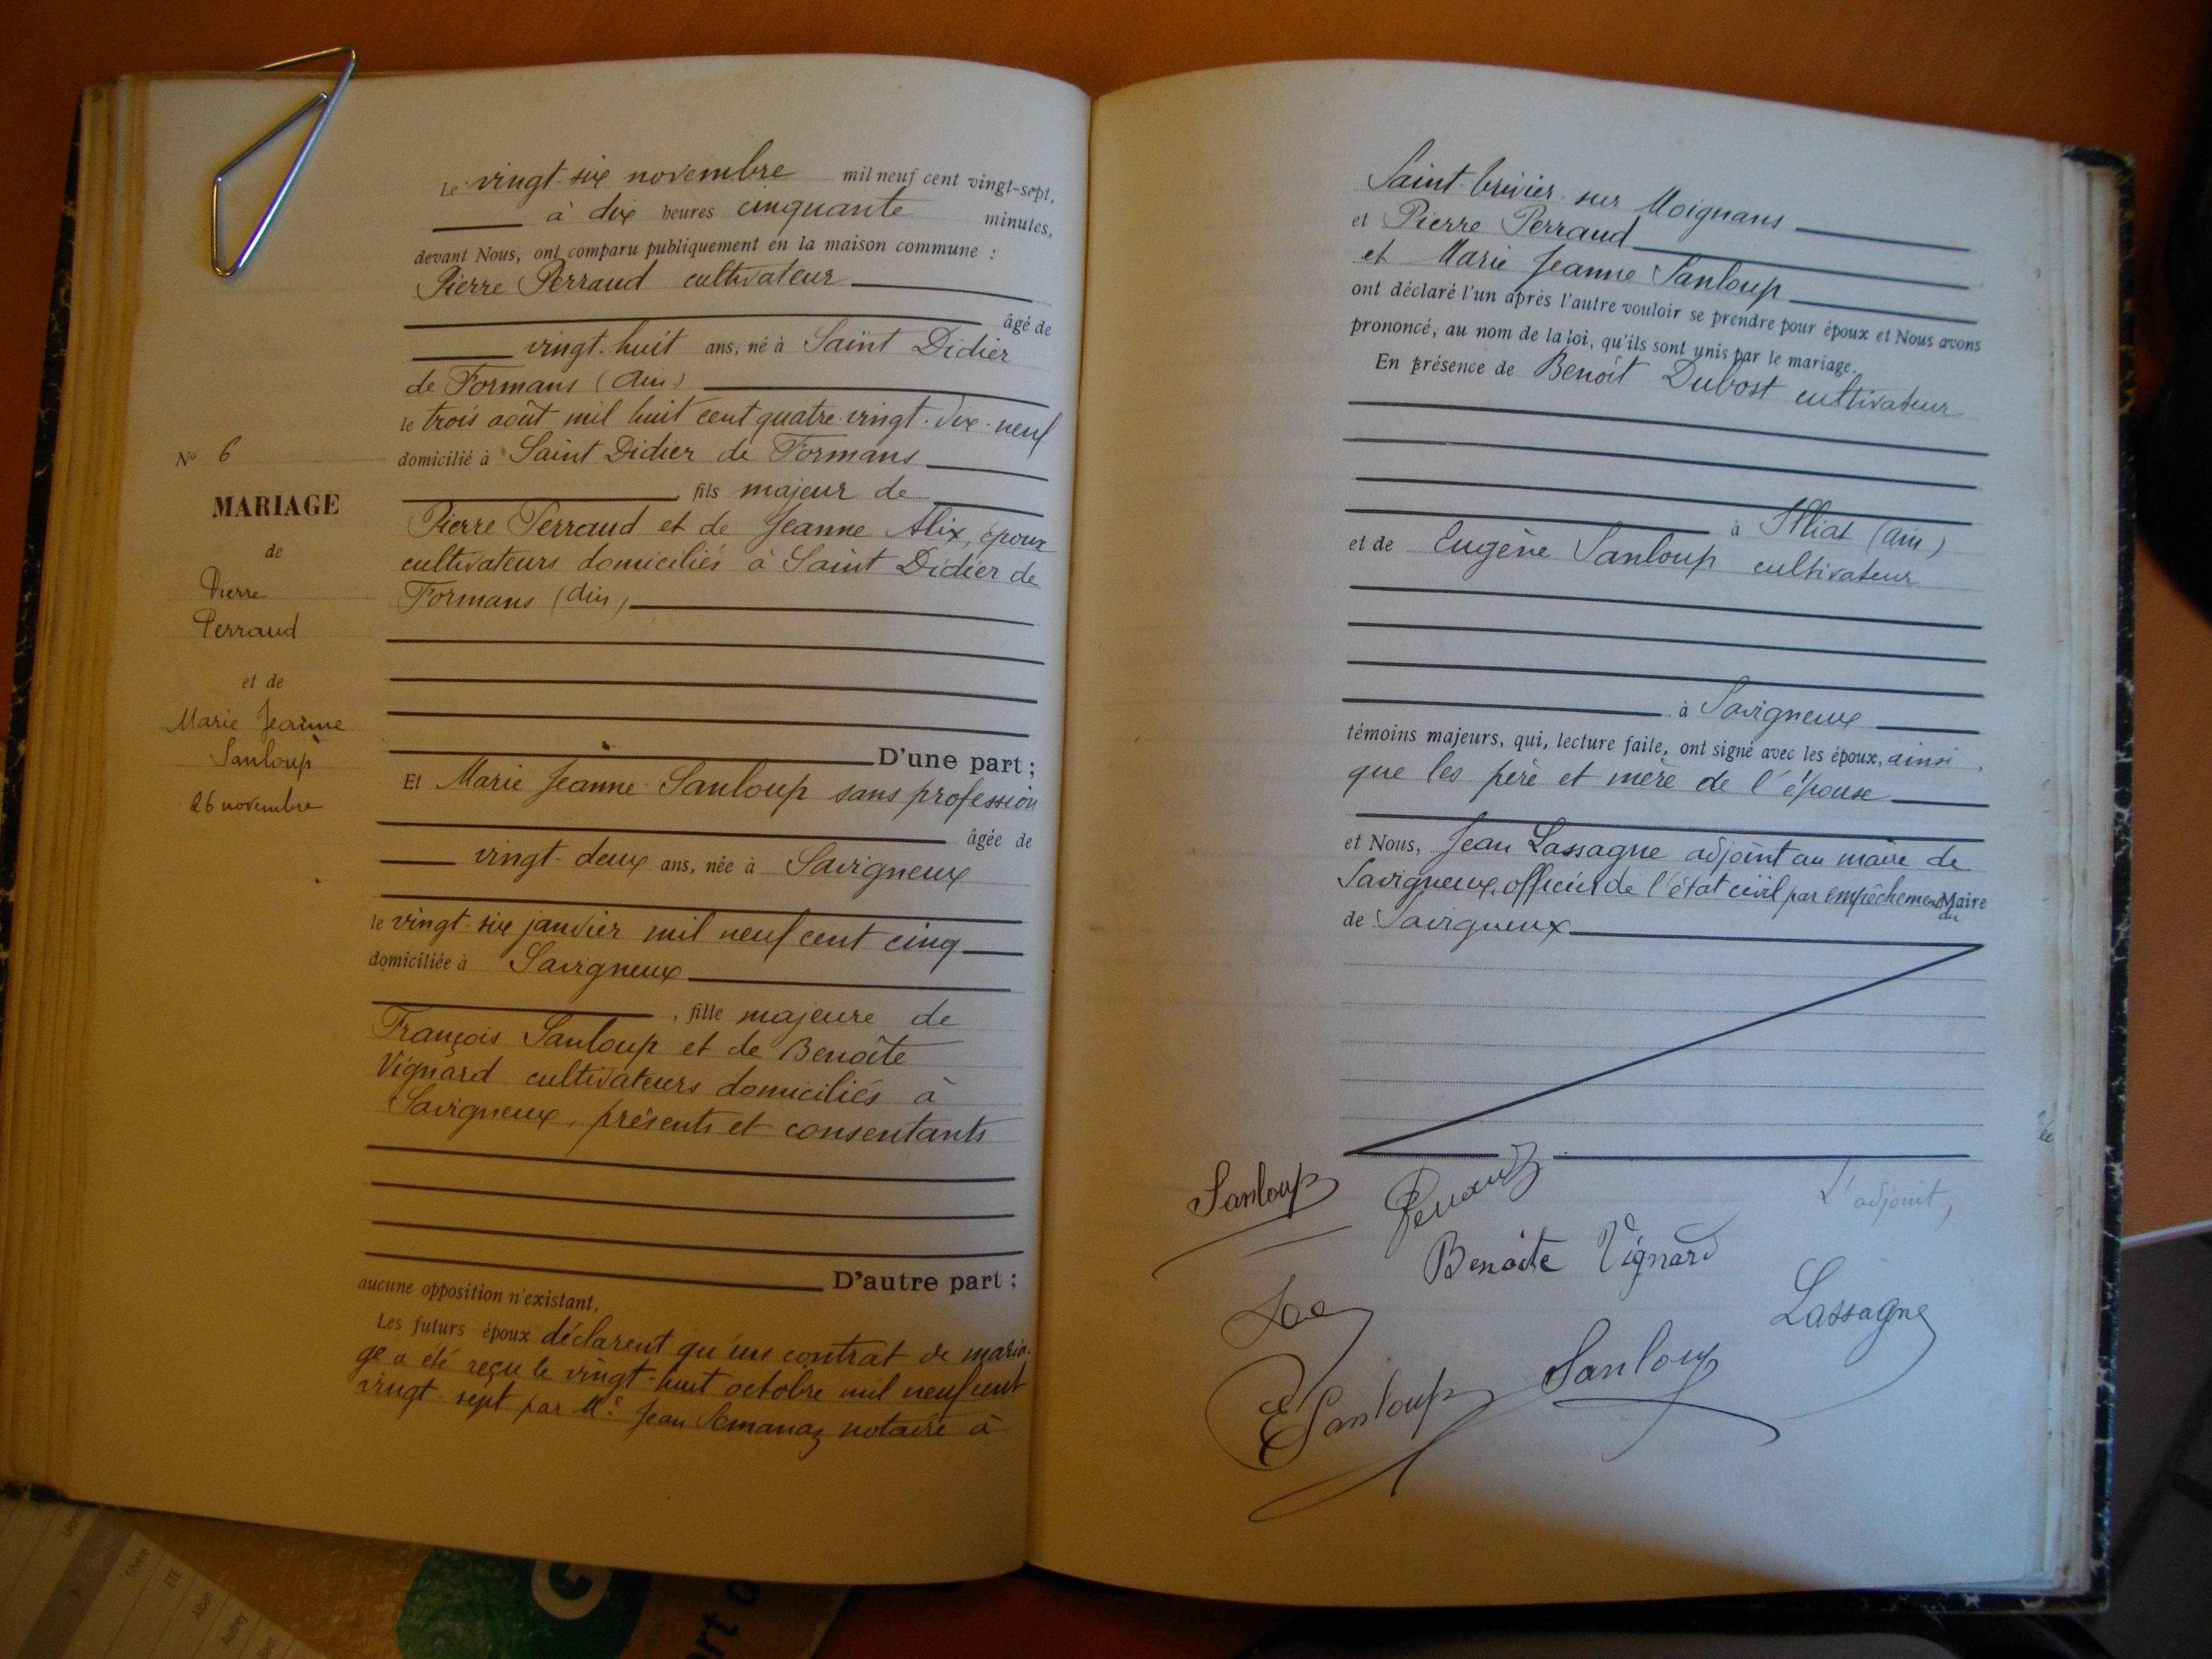 Le vingt-six novembre mil neuf cent vingt-sept,
à dix heures cinquante minutes,
devant Nous, ont comparu publiquement en la maison commune :
Pierre Perraud cultivateur
âgé de
vingt-huit ans, né à Saint Didier
de Formans (Ain)
le trois août mil huit cent quatre-vingt-dix-neuf
domicilié à Saint Didier de Formans
fils majeur de
Pierre Perraud et de Jeanne Alix, époux
cultivateurs domiciliés à Saint Didier de
Formans (Ain)
D'une part ;
Et Marie Jeanne Sanloup sans profession
âgée de
vingt-deux ans, née à Savigneux
le vingt-six janvier mil neuf cent cinq
domiciliée à Savigneux
, fille majeure de
François Sanloup et de Benoîte
Vignard cultivateurs domiciliés à
Savigneux, présents et consentants
D'autre part ;
aucune opposition n'existant,
Les futurs époux déclarent qu'un contrat de maria-
ge a été reçu le vingt-huit octobre mil neuf cent
vingt-sept par Me Jean Semanaz notaire à
No 6
MARIAGE
de
Pierre
Perraud
et de
Marie Jeanne
Sanloup
26 novembre
Saint-Trivier-sur Moignans
et Pierre Perraud
et Marie Jeanne Sanloup
ont déclaré l'un après l'autre vouloir se prendre pour époux et Nous avons
prononcé, au nom de la loi, qu'ils sont unis par le mariage.
En présence de Benoît Dubost cultivateur
à Illiat (Ain)
et de Eugène Sanloup cultivateur
à Savigneux
témoins majeurs, qui, lecture faite, ont signé avec les époux, ainsi
que les père et mère de l'épouse
et Nous, Jean Lassagne adjoint au maire de
Savigneux, officier de l'état civil par empêchement du Maire
de Savigneux
Sanloup
Perraud
L'adjoint,
Benoîte Vignard
Lassagne
Sanloup
ESanloup